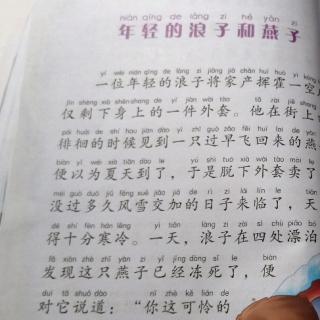 nián qīng de làng zi hé yàn zi
年轻的浪子和燕子
yí wèi nián qīng de làng zi jiāng jiā chǎn huī huò yì kōng
一位年轻的浪子将家产挥霍一空
jǐn shèng xià shēn shang de yí jiàn wài tào tā zài jiē shang
仅剩下身上的一件外套。他在街上
pái huái de shí hou jiàn dào yì zhī guò zǎo fēi huí lái de yàn
徘徊的时候见到一只过早飞回来的燕
biàn yǐ wéi xià tiān dào le yú shì tuō xià wài tào mài le
便以为夏天到了，于是脱下外套卖了
méi guò duō jiǔ fēng xuě jiāo jiā de rì zi lái lín le tiān
没过多久风雪交加的日子来临了，天
dé shí fēn hán lěng yì tiān làng zi zài sì chù piāo bó
得十分寒冷。一天，浪子在四处漂泊
fā xiàn zhè zhī yàn zi yǐ jīng dòng sǐ le biàn
发现这只燕子已经冻死了，便
duì tā shuō dào nǐ zhè kě lián de
对它说道：“你这可怜的